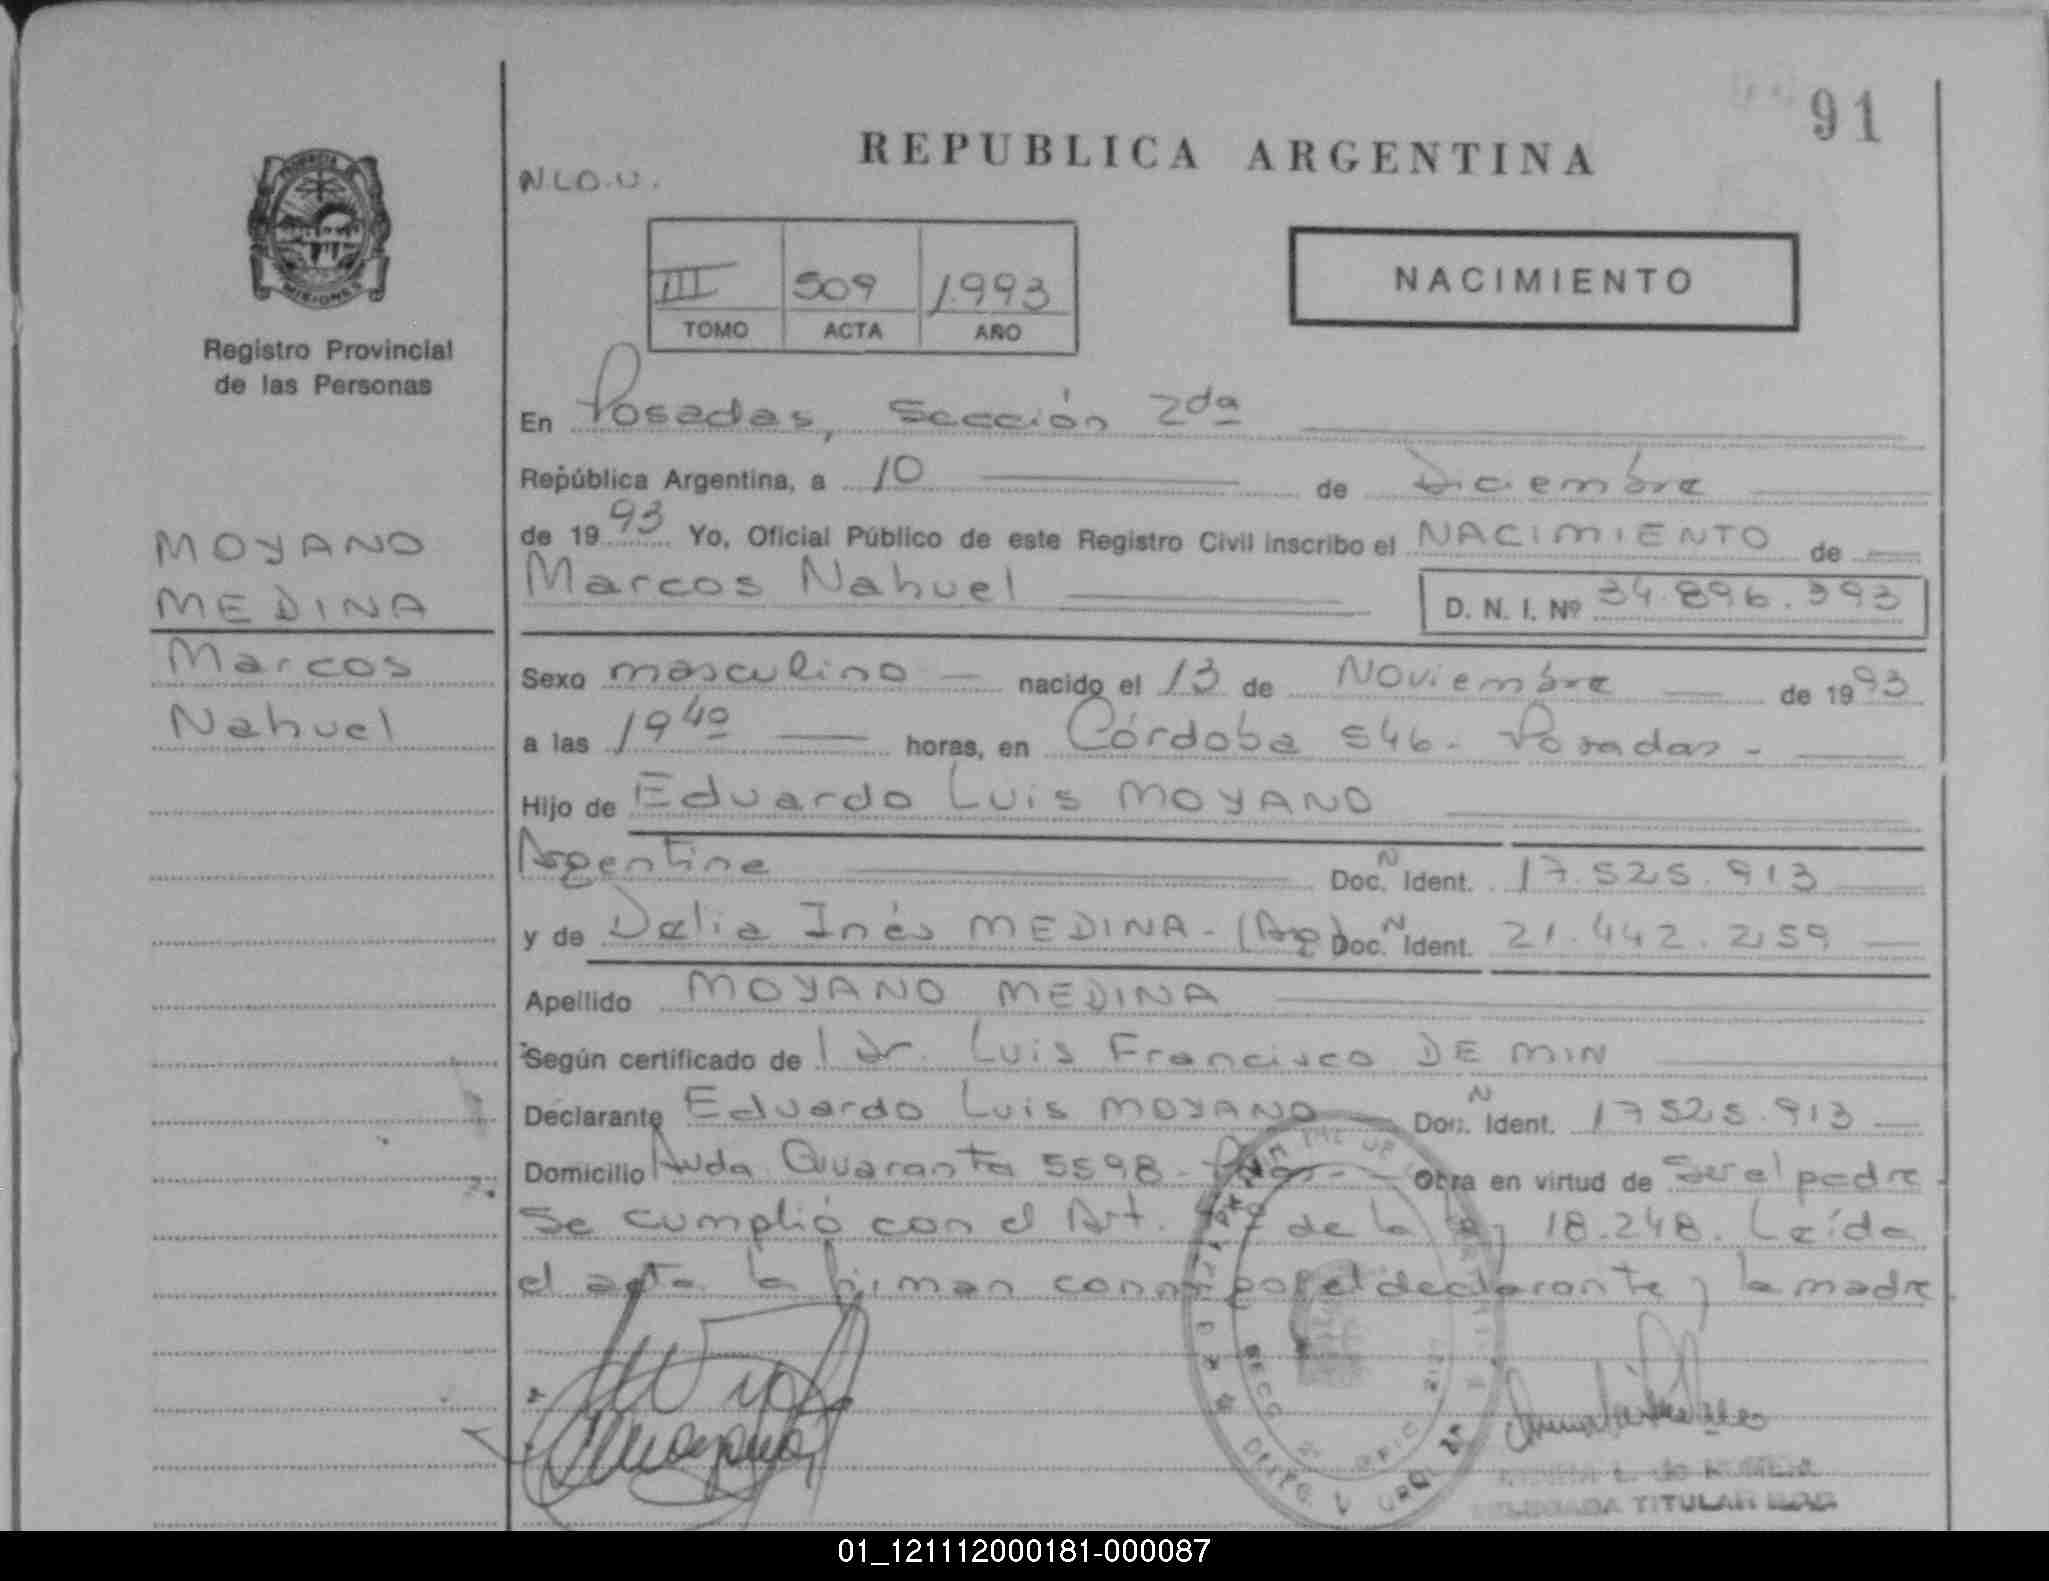 91
REPUBLICA ARGENTINA
N.L.O.U.
III 509 1.993
TOMO ACTA AÑO
NACIMIENTO
MISIONES
Registro Provincial
de las Personas
MOYANO
MEDINA
Marcos
Nahuel
En Posadas, Sección 2da
República Argentina, a 10 de Diciembre
de 1993 Yo, Oficial Público de este Registro Civil inscribo el NACIMIENTO de
Marcos Nahuel D. N. I. Nº 34.896.393
Sexo masculino nacido el 13 de Noviembre de 1993
a las 19 40 horas, en Córdoba 546 - Posadas -
Hijo de Eduardo Luis MOYANO
Argentina Doc. N Ident. 17.525.913
y de Delia Inés MEDINA - (Arg) Doc. N Ident. 21.442.259
Apellido MOYANO MEDINA
Según certificado de l Dr. Luis Francisco DE MIN
Declarante Eduardo Luis MOYANO Doc. N Ident. 17.525.913
Domicilio Avda Quaranta 5598 - Obra en virtud de Ser el padre
Se cumplió con el Art. de la ley 18.248. Leída
el acta la firman conmigo el declarante y la madre
TITULAR
01_121112000181-000087